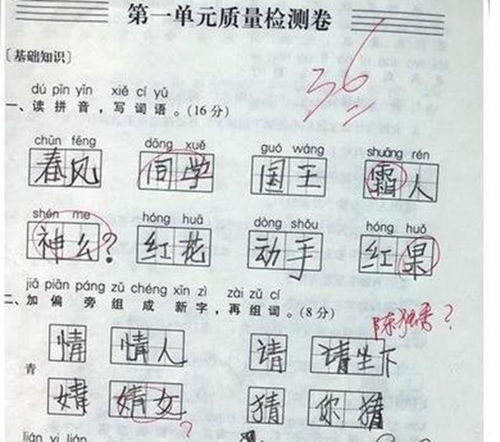 第一单元质量检测卷
36
〔基础知识〕
dú pīn yīn xiě cí yǔ
一、读拼音,写词语。(16分)
chūn fēng dōng xuě guó wáng shuāng rén
春风 同学 国王 霜人
shén me hóng huā dòng shǒu hóng huǒ
神么? 红花 动手 红果
jiā piān páng zǔ chéng xīn zì zài zǔ cí
二、加偏旁组成新字,再组词。(8分)
情 情人 请 请坐下
青
婧 婧女 猜 你猜
?
lián yì lián